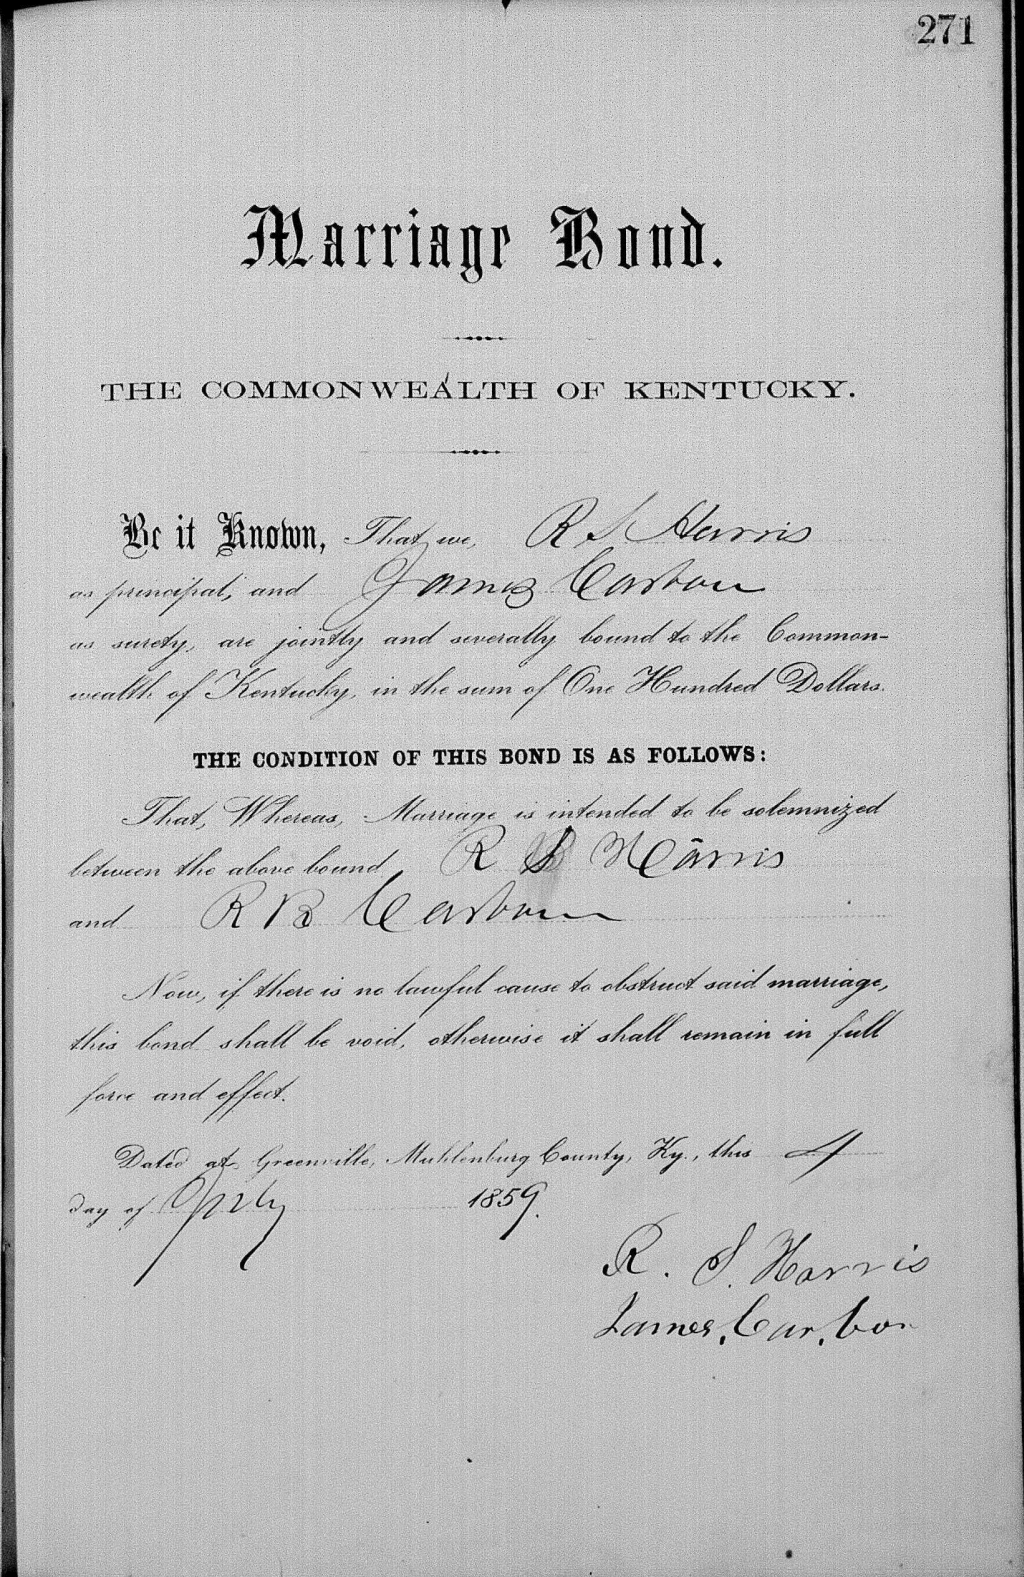 271
Marriage Bond.
THE COMMONWEALTH OF KENTUCKY.
Be it Known, That we, R S Harris
as principal, and James Carbon
as surety, are jointly and severally bound to the Common-
wealth of Kentucky, in the sum of One Hundred Dollars.
THE CONDITION OF THIS BOND IS AS FOLLOWS:
That, Whereas, Marriage is intended to be solemnized
between the above bound R S Harris
and R B Carbon
Now, if there is no lawful cause to obstruct said marriage,
this bond shall be void, otherwise it shall remain in full
force and effect.
Dated at Greenville, Muhlenburg County, Ky., this 4
day of July 1859.
R. S. Harris
James. Car. bon